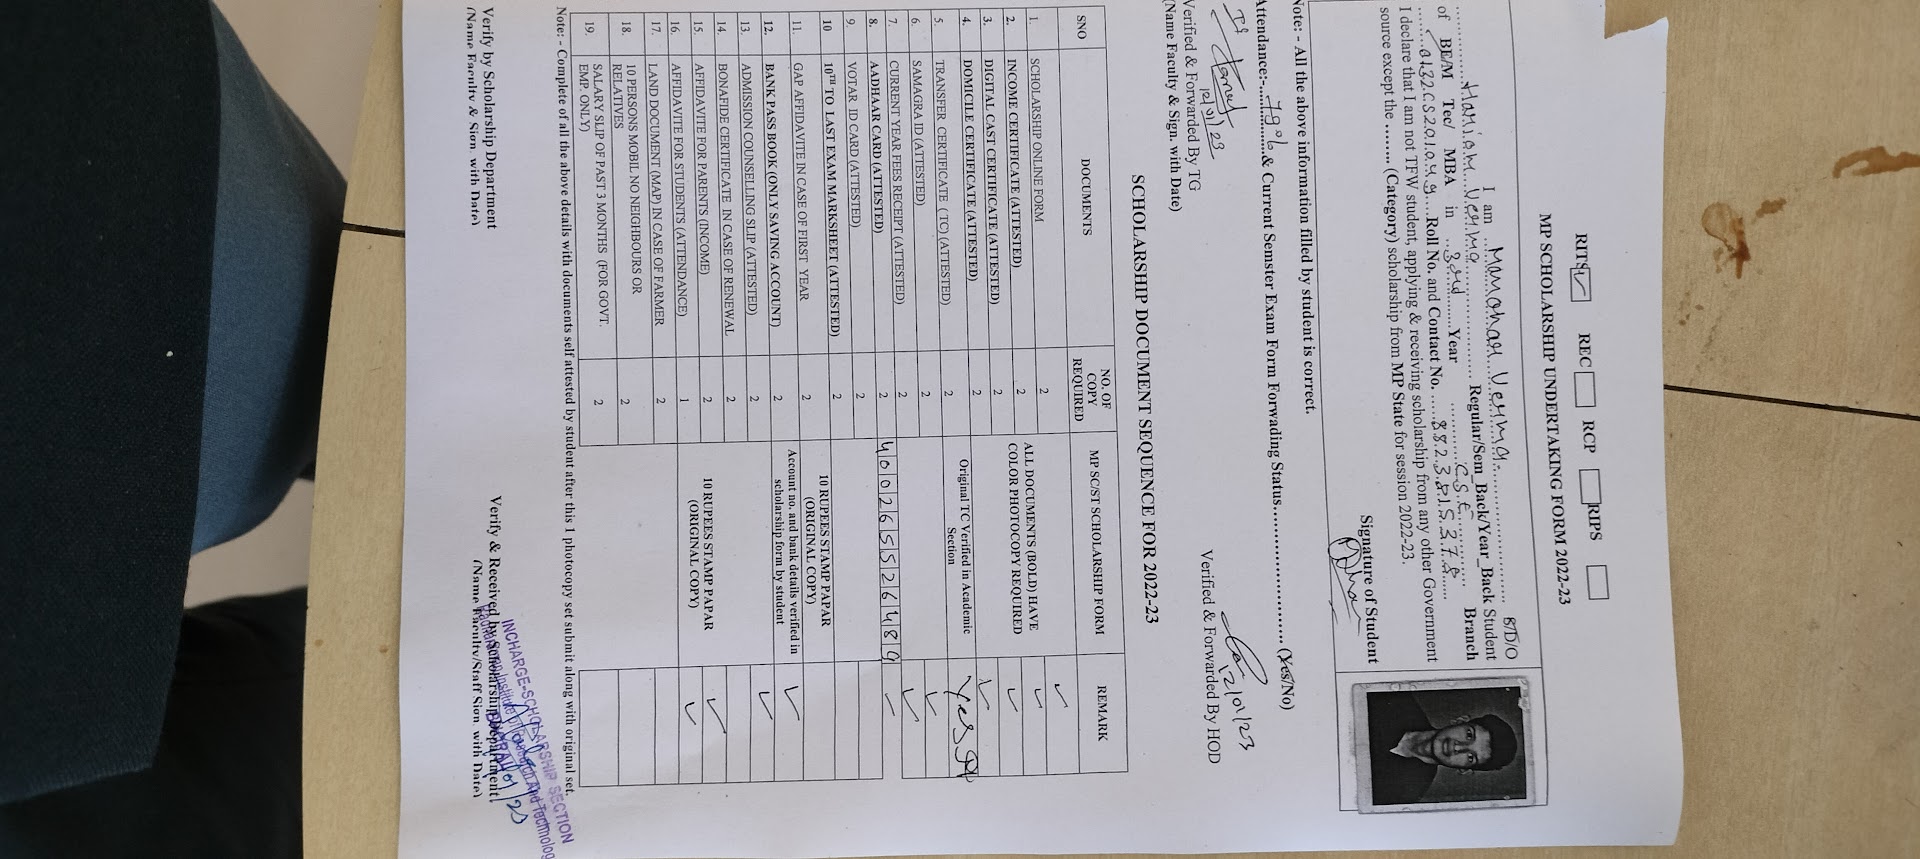 RITS REC RCP RIPS
MP SCHOLARSHIP UNDERTAKING FORM 2022-23
I am Manohar Verma S/D/O
Hariom Verma Regular/Sem_Back/Year_Back Student
of BE/M Tec/ MBA in 3rd Year C.S.E Branch
0132CS201049 Roll No. and Contact No. 8823815378
I declare that I am not TFW student, applying & receiving scholarship from any other Government
source except the ........ (Category) scholarship from MP State for session 2022-23.
Signature of Student
Note: - All the above information filled by student is correct.
Attendance:- 79% & Current Semster Exam Form Forwading Status........................ (Yes/No)
12/01/23
12/01/23
Verified & Forwarded By TG
Verified & Forwarded By HOD
(Name Faculty & Sign. with Date)
SCHOLARSHIP DOCUMENT SEQUENCE FOR 2022-23
SNO DOCUMENTS NO. OF COPY REQUIRED MP SC/ST SCHOLARSHIP FORM REMARK
1. SCHOLARSHIP ONLINE FORM 2
ALL DOCUMENTS (BOLD) HAVE
COLOR PHOTOCOPY REQUIRED
2. INCOME CERTIFICATE (ATTESTED) 2
3. DIGITAL CAST CERTIFICATE (ATTESTED) 2
4. DOMICILE CERTIFICATE (ATTESTED) 2
5. TRANSFER CERTIFICATE ( TC) (ATTESTED) 2 Original TC Verified in Academic Section Yes
6. SAMAGRA ID (ATTESTED) 2
7. CURRENT YEAR FEES RECEIPT (ATTESTED) 2
8. AADHAAR CARD (ATTESTED) 2 400265526489
9. VOTAR ID CARD (ATTESTED) 2
10 10TH TO LAST EXAM MARKSHEET (ATTESTED) 2
11. GAP AFFIDAVITE IN CASE OF FIRST YEAR 2 10 RUPEES STAMP PAPAR (ORIGINAL COPY)
12. BANK PASS BOOK (ONLY SAVING ACCOUNT) 2 Account no. and bank details verified in scholarship form by student
13. ADMISSION COUNSELLING SLIP (ATTESTED) 2
14. BONAFIDE CERTIFICATE IN CASE OF RENEWAL 2
15. AFFIDAVITE FOR PARENTS (INCOME) 2 10 RUPEES STAMP PAPAR
16. AFFIDAVITE FOR STUDENTS (ATTENDANCE) 1 (ORIGINAL COPY)
17. LAND DOCUMENT (MAP) IN CASE OF FARMER 2
18. 10 PERSONS MOBIL NO NEIGHBOURS OR RELATIVES 2
19. SALARY SLIP OF PAST 3 MONTHS (FOR GOVT. EMP. ONLY) 2
Note: - Complete of all the above details with documents self attested by student after this 1 photocopy set submit along with original set.
INCHARGE-SCHOLARSHIP SECTION
Radharaman Institute of Research And Technology
BHOPAL
Verify by Scholarship Department
Verify & Received by Scholarship Department
(Name Faculty & Sign. with Date)
(Name Faculty/Staff Sign. with Date)